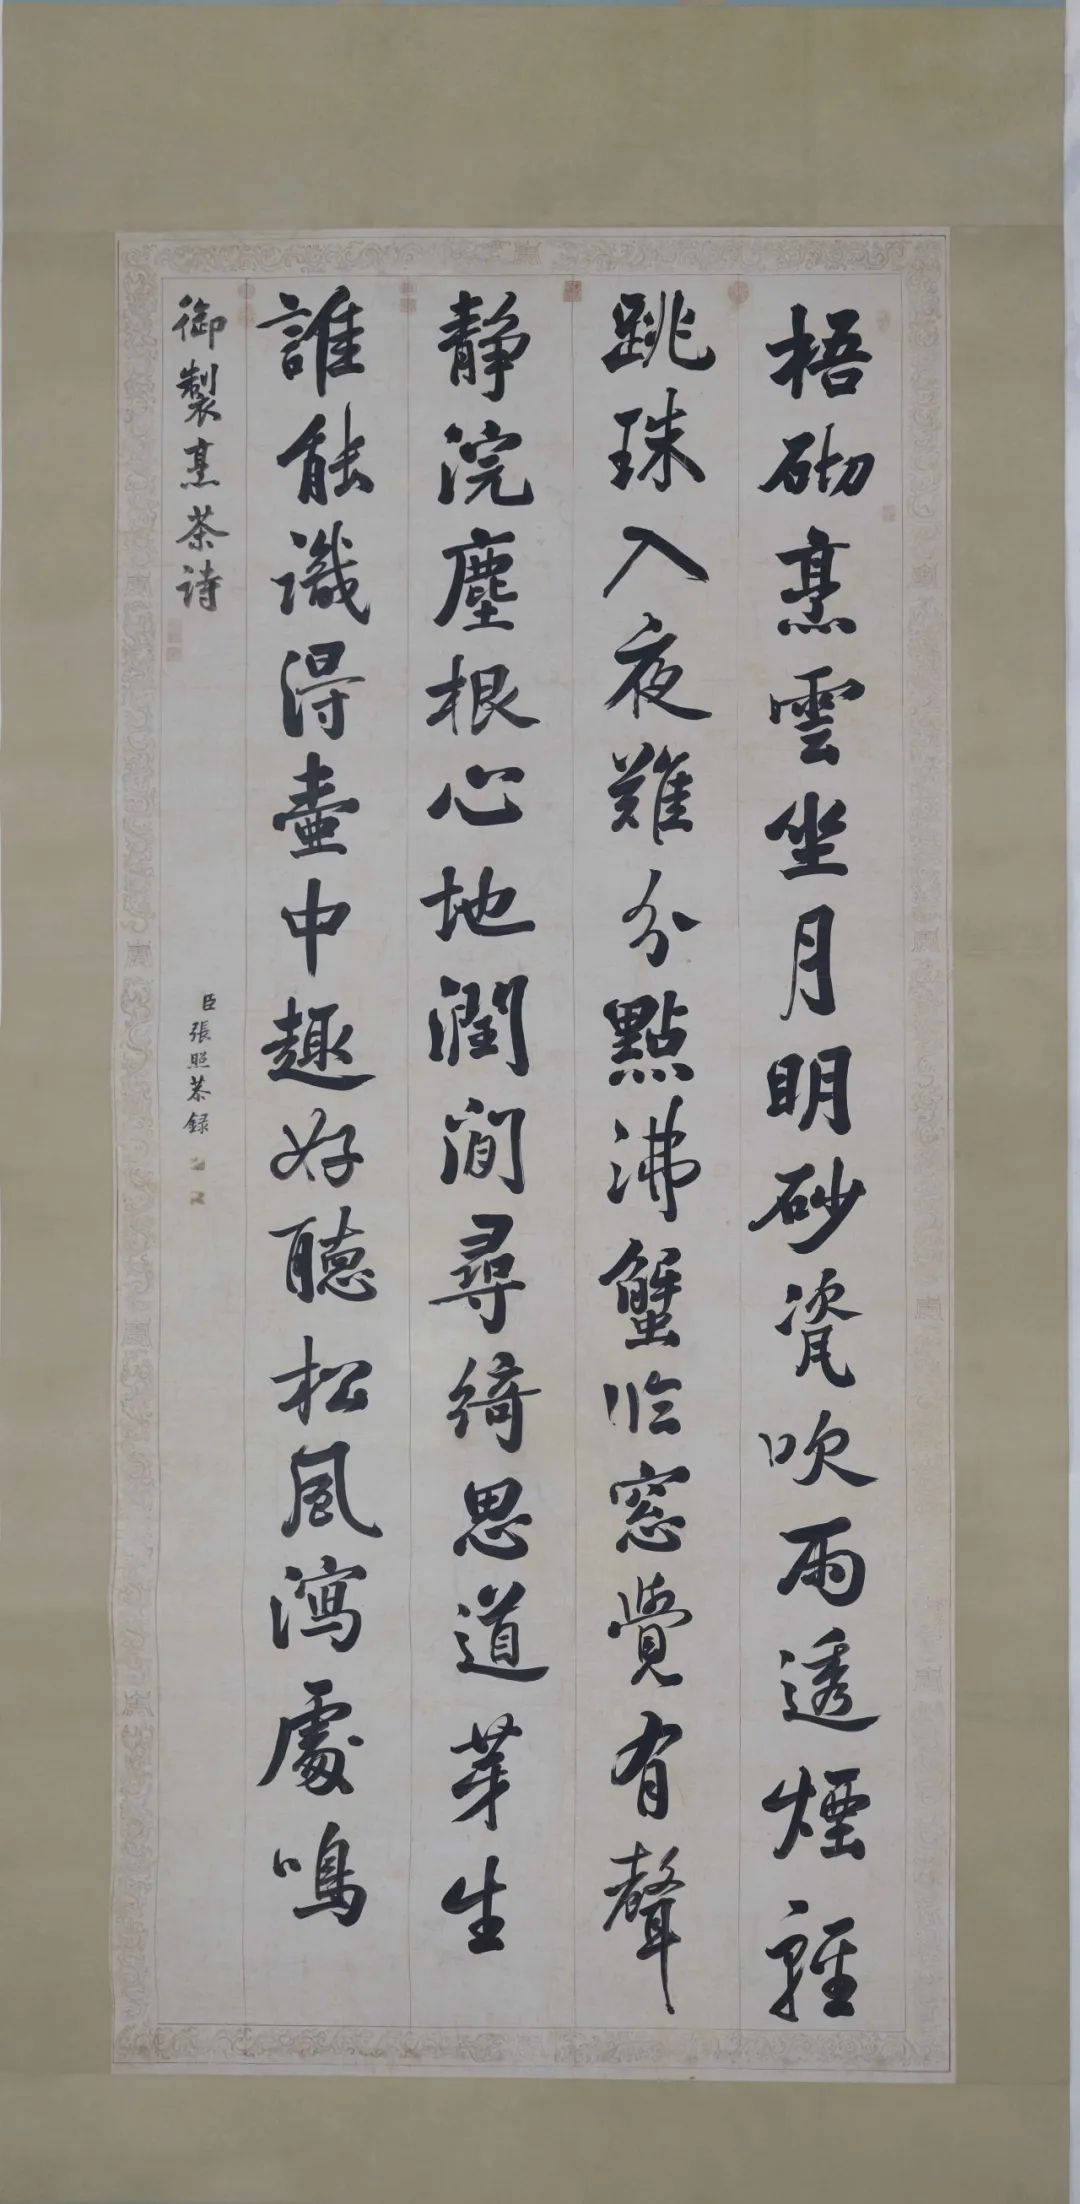 梧砌烹雲坐月明砂瓷吹雨透煙輕
跳珠入夜難分點沸蟹臨窓覺有聲
靜浣塵根心地潤閒尋綺思道芽生
誰能識得壺中趣好聽松風瀉處鳴
御製烹茶詩
臣張照恭錄